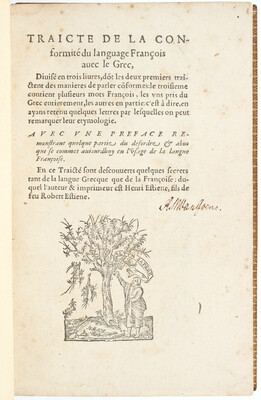 TRAICTE DE LA CON-
formité du language François
auec le Grec,
Diuisé en trois liures, dõt les deux premiers trai-
ctent des manieres de parler cõformes: le troisieme
contient plusieurs mots François, les vns pris du
Grec entierement, les autres en partie: c'est à dire, en
ayans retenu quelques lettres par lesquelles on peut
remarquer leur etymologie.
AVEC VNE PREFACE RE-
monstrant quelque partie du desordre & abus
qui se commet auiourdhuy en l'vsage de la langue
Françoise.
En ce Traicté sont descouuerts quelques secrets
tant de la langue Grecque que de la Françoise: du-
quel l'auteur & imprimeur est Henri Estiene, fils de
feu Robert Estiene.